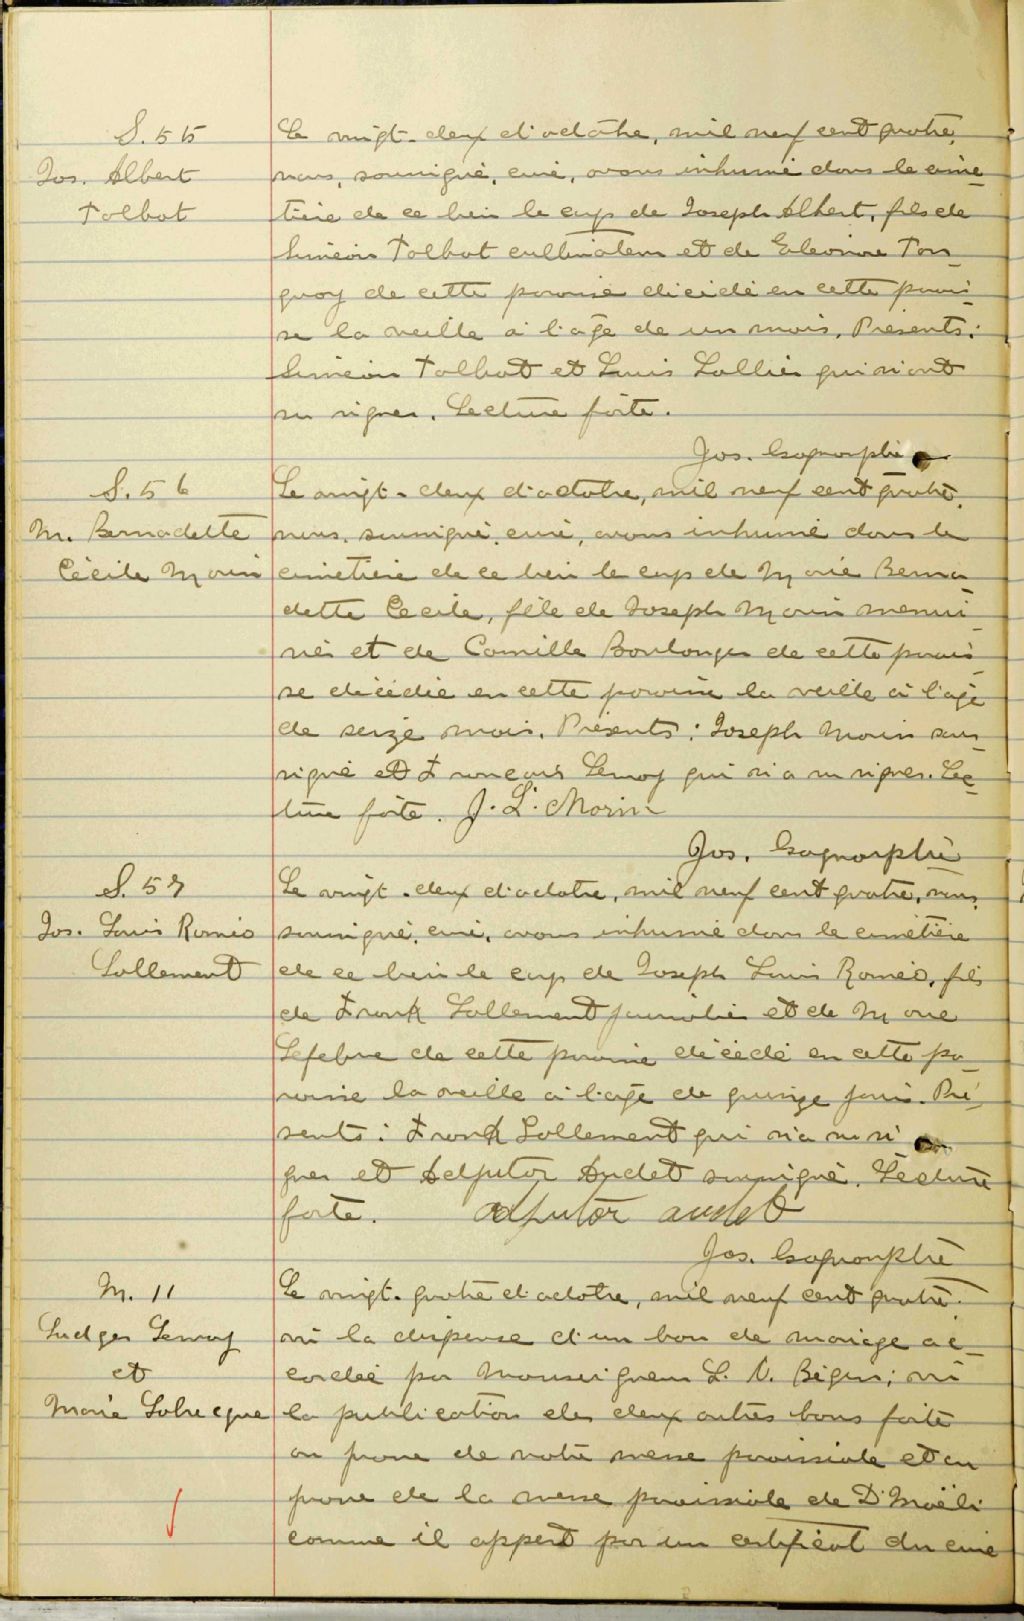 S. 55
Jos. Albert
Talbot
Le vingt-deux d'octobre, mil neuf cent quatre,
nous, soussigné, curé, avons inhumé dans le cime-
tière de ce lieu le corps de Joseph Albert, fils de
Siméon Talbot cultivateur et de Eléonore Tan-
guay de cette paroisse décédé en cette parois-
se la veille à l'âge de un mois. Présents:
Siméon Talbot et Louis Lallier qui n'ont
su signer. Lecture faite.
Jos.
S. 56
M. Bernadette
Cécile Morin
Le vingt-deux d'octobre, mil neuf cent quatre,
nous, soussigné, curé, avons inhumé dans le
cimetière de ce lieu le corps de Marie Berna-
dette Cécile, fille de Joseph Morin menui-
sier et de Camille Boulanger de cette parois-
se décédée en cette paroisse la veille à l'âge
de seize mois. Présents: Joseph Morin sous-
signé et François Lemay qui n'a su signer. Lec-
ture faite. J. L. Morin
Jos.
S. 57
Jos. Louis Roméo
Lallemand
Le vingt-deux d'octobre, mil neuf cent quatre, nous,
soussigné, curé, avons inhumé dans le cimetière
de ce lieu le corps de Joseph Louis Roméo, fils
de Frank Lallemand journalier et de Marie
Lefebvre de cette paroisse décédé en cette pa-
roisse la veille à l'âge de quinze jours. Pré-
sents: Frank Lallemand qui n'a su si-
gner et Adjutor Audet soussigné. Lecture
faite. adjutor audet
Jos.
M. 11
Ludger Lemay
et
Marie Labrecque
Le vingt-quatre d'octobre, mil neuf cent quatre.
vu la dispense d'un ban de mariage ac-
cordée par Monseigneur L. N. Bégin; vu
la publication des deux autres bans faite
au prone de notre messe paroissiale et au
prone de la messe paroissiale de D'Israëli
comme il appert par un certificat du curé